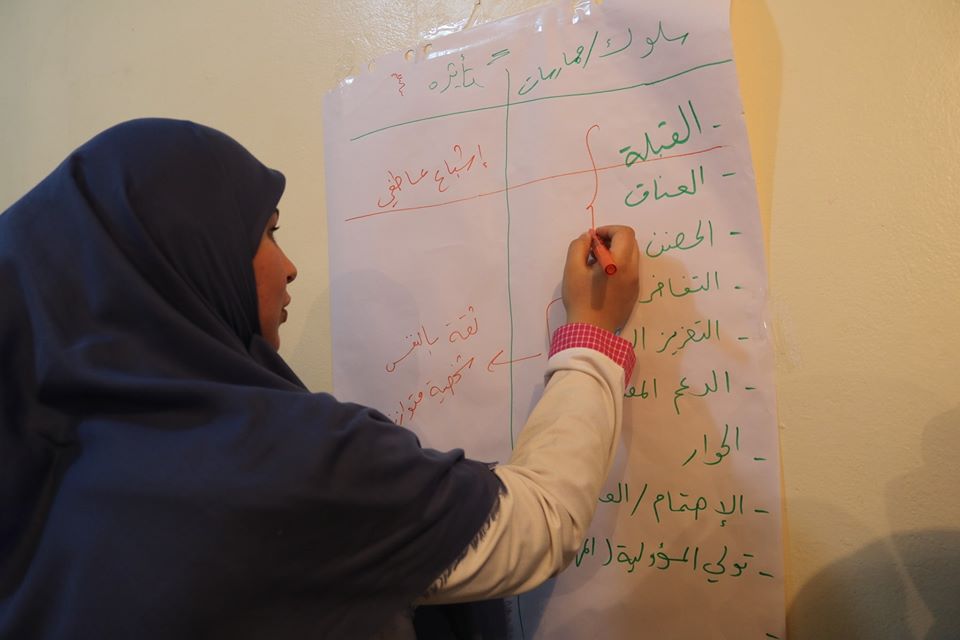 سلوك/ممارسات = تأثيره
- القبلة
- العناق
- الحضن
- التفاخر
- التعزيز
- الدعم
- الحوار
- الإهتمام /
- تولي المسؤولية (
إشباع عاطفي
ثقة بالنفس
شخصية